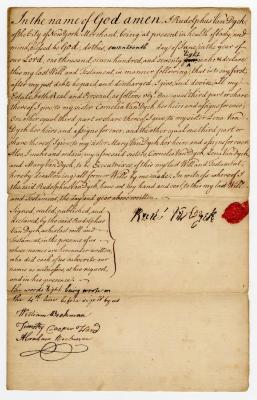 In the name of God amen. I Rudolphus Van Dyck
of the City of New York Merchant being at present in health of body and
mind praised be God: do this seventeenth day of June in the year of
our Lord, one thousand seven hundred and seventy Eight make & declare
this my last Will and Testament, in manner following; that is to say first,
after my just debts be paid and discharged, I give, and devise, all my
Estate, both Real and Personal as follows viz. One equal third part or share
thereof I give to my sister Cornelia Van Dyck her heirs and assigns forever:
One other equal third part or share thereof I give to my sister Lena Van
Dyck her heirs and assigns for ever: and the other equal third part or
share thereof I give to my sister Mary Van Dyck her heirs and assigns for ever
Also I make and ordain my aforesaid sisters Cornelia Van Dyck Lena Van Dyck
and Mary Van Dyck, to be Executrices of this my last Will and Testament,
hereby revoking all former Wills by me made: In witness whereof I
the said Rudolphus Van Dyck have set my hand and seal to this my last Will
and Testament, the day and year above written
Signed sealed, published, and
declared by the said Rudolphus
Van Dyck as his last will and
Testament, in the presence of us
whose names are hereunder written,
who did each of us subscribe our
names as witnesses, at his request,
and in his presence:
the words Eight being wrote on
the 4th line before sign'd by us
Rud: Van Dyck
William Beekman
Timothy Cooper
Abraham Beekman